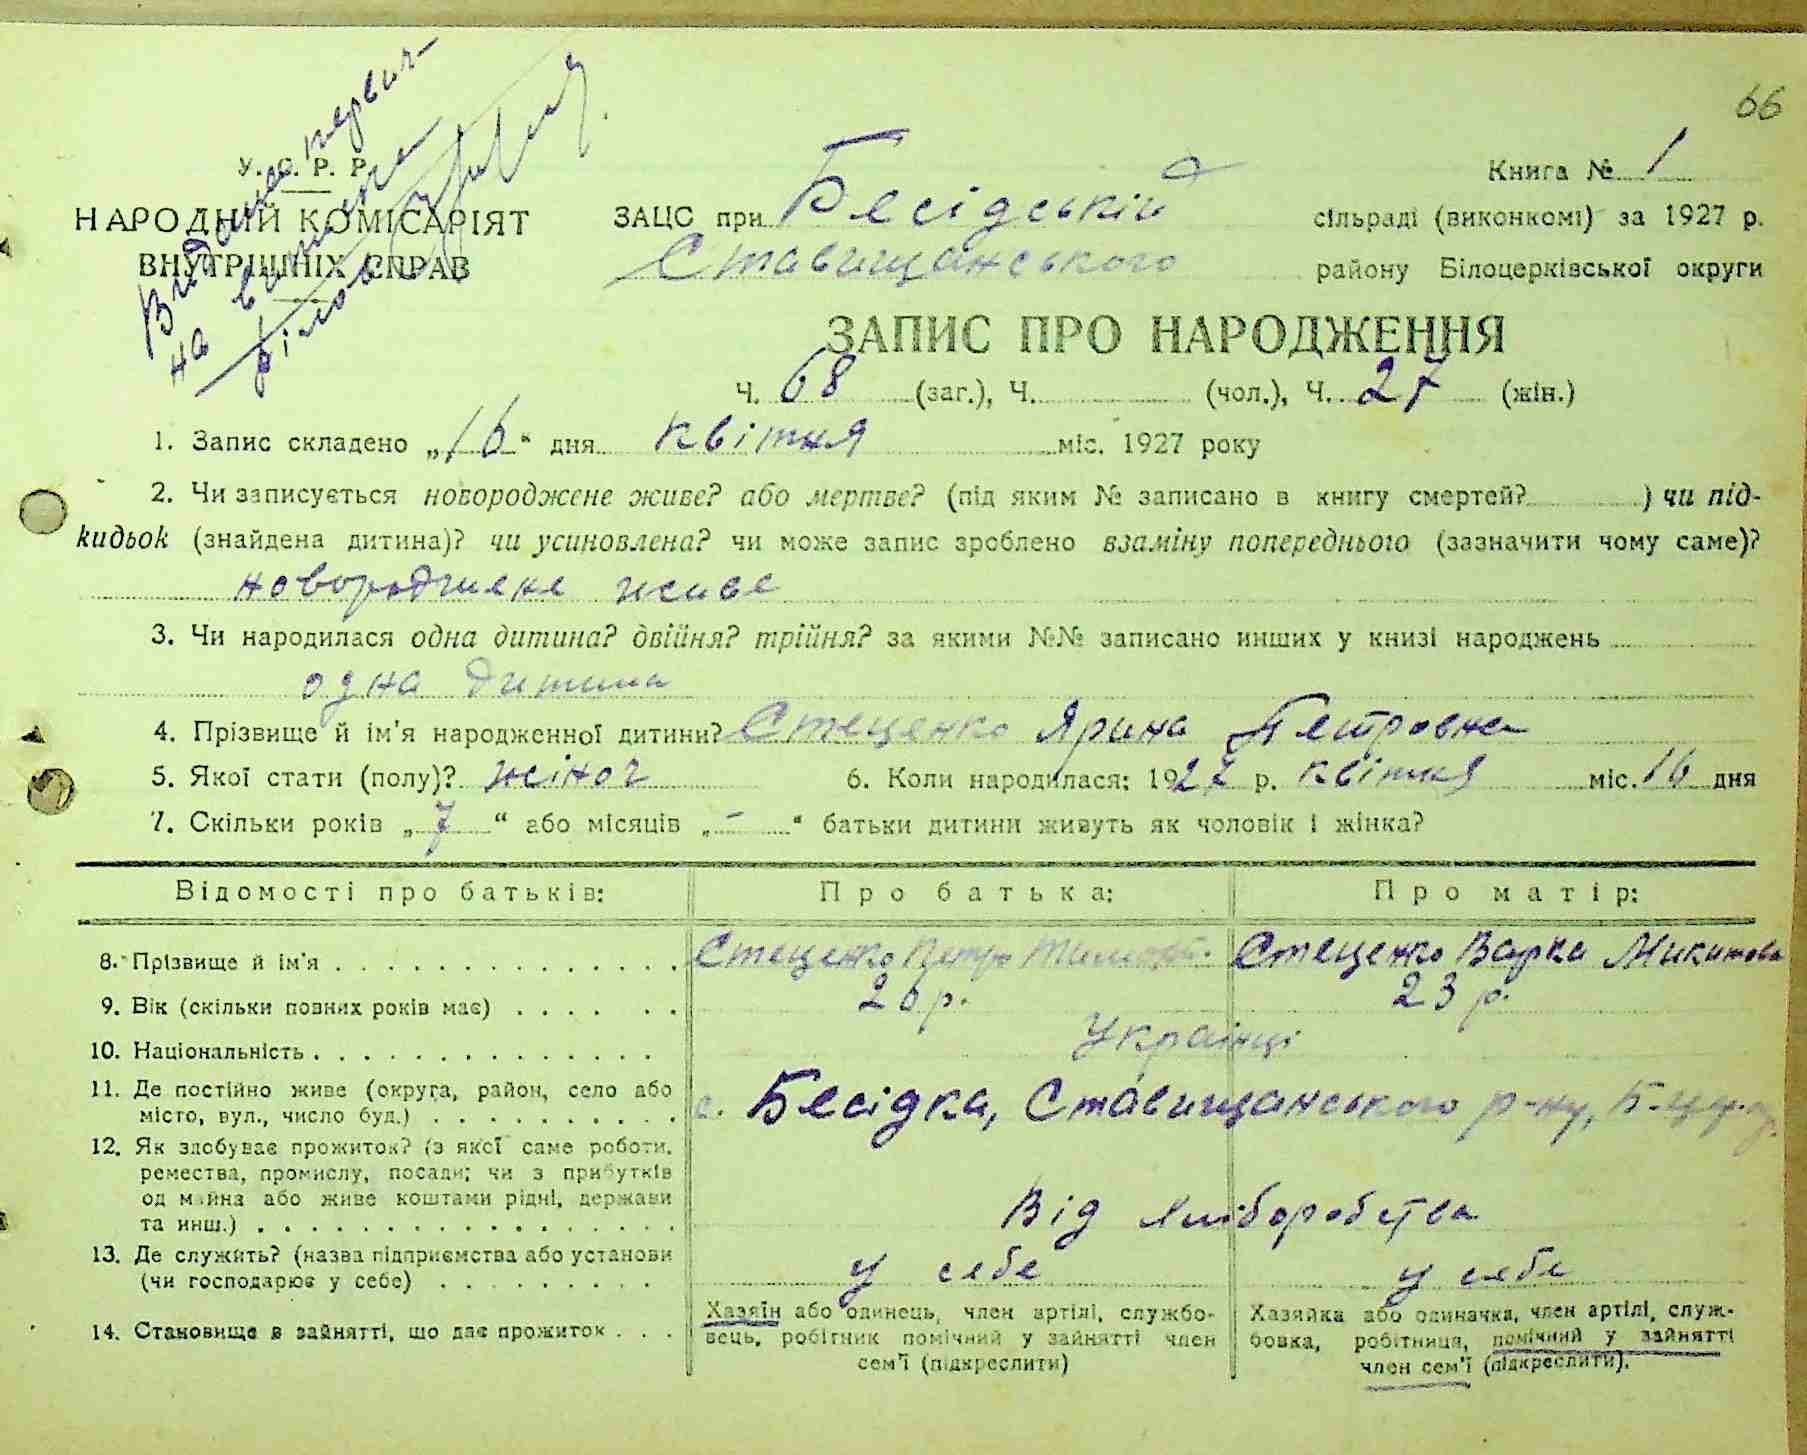 66
Видано первич-
на виписка
У. С. Р. Р.
НАРОДНІЙ КОМІСАРІЯТ
ВНУТРІШНІХ СПРАВ
Книга № 1
ЗАЦС при Бесідській сільраді (виконкомі) за 1927 р.
Ставищанського району Білоцерківської округи
ЗАПИС ПРО НАРОДЖЕННЯ
Ч. 68 (заг.), Ч. (чол.), Ч. 27 (жін.)
1. Запис складено „16“ дня квітня міс. 1927 року
2. Чи записується новороджене живе? або мертве? (під яким № записано в книгу смертей? ) чи під-
кидьок (знайдена дитина)? чи усиновлена? чи може запис зроблено взаміну попереднього (зазначити чому саме)?
новороджене живе
3. Чи народилася одна дитина? двійня? трійня? за якими №№ записано инших у книзі народжень
одна дитина
4. Прізвище й ім'я народженної дитини? Стеценко Ярина Петровна
5. Якої стати (полу)? жіноч 6. Коли народилася: 1927 р. квітня міс. 16 дня
7. Скільки років „7“ або місяців „-“ батьки дитини живуть як чоловік і жінка?
Відомості про батьків: Про батька: Про матір:
8. Прізвище й ім'я Стеценко Петро Стеценко Варка Микитова
9. Вік (скільки повних років має) 26 р. 23 р.
10. Національність Українці
11. Де постійно живе (округа, район, село або
місто, вул., число буд.) с. Бесідка, Ставищанського р-ну,
12. Як здобуває прожиток? (з якої саме роботи,
ремества, промислу, посади; чи з прибутків
од майна або живе коштами рідні, держави
та инш.) Від хліборобства
13. Де служить? (назва підприємства або установи
(чи господарює у себе) у себе у себе
14. Становище в зайнятті, що дає прожиток
Хазяїн або одинець, член артілі, службо-
вець, робітник помічний у зайнятті член
сем'ї (підкреслити)
Хазяйка або одиначка, член артілі, служ-
бовка, робітниця, помічний у зайнятті
член сем'ї (підкреслити).